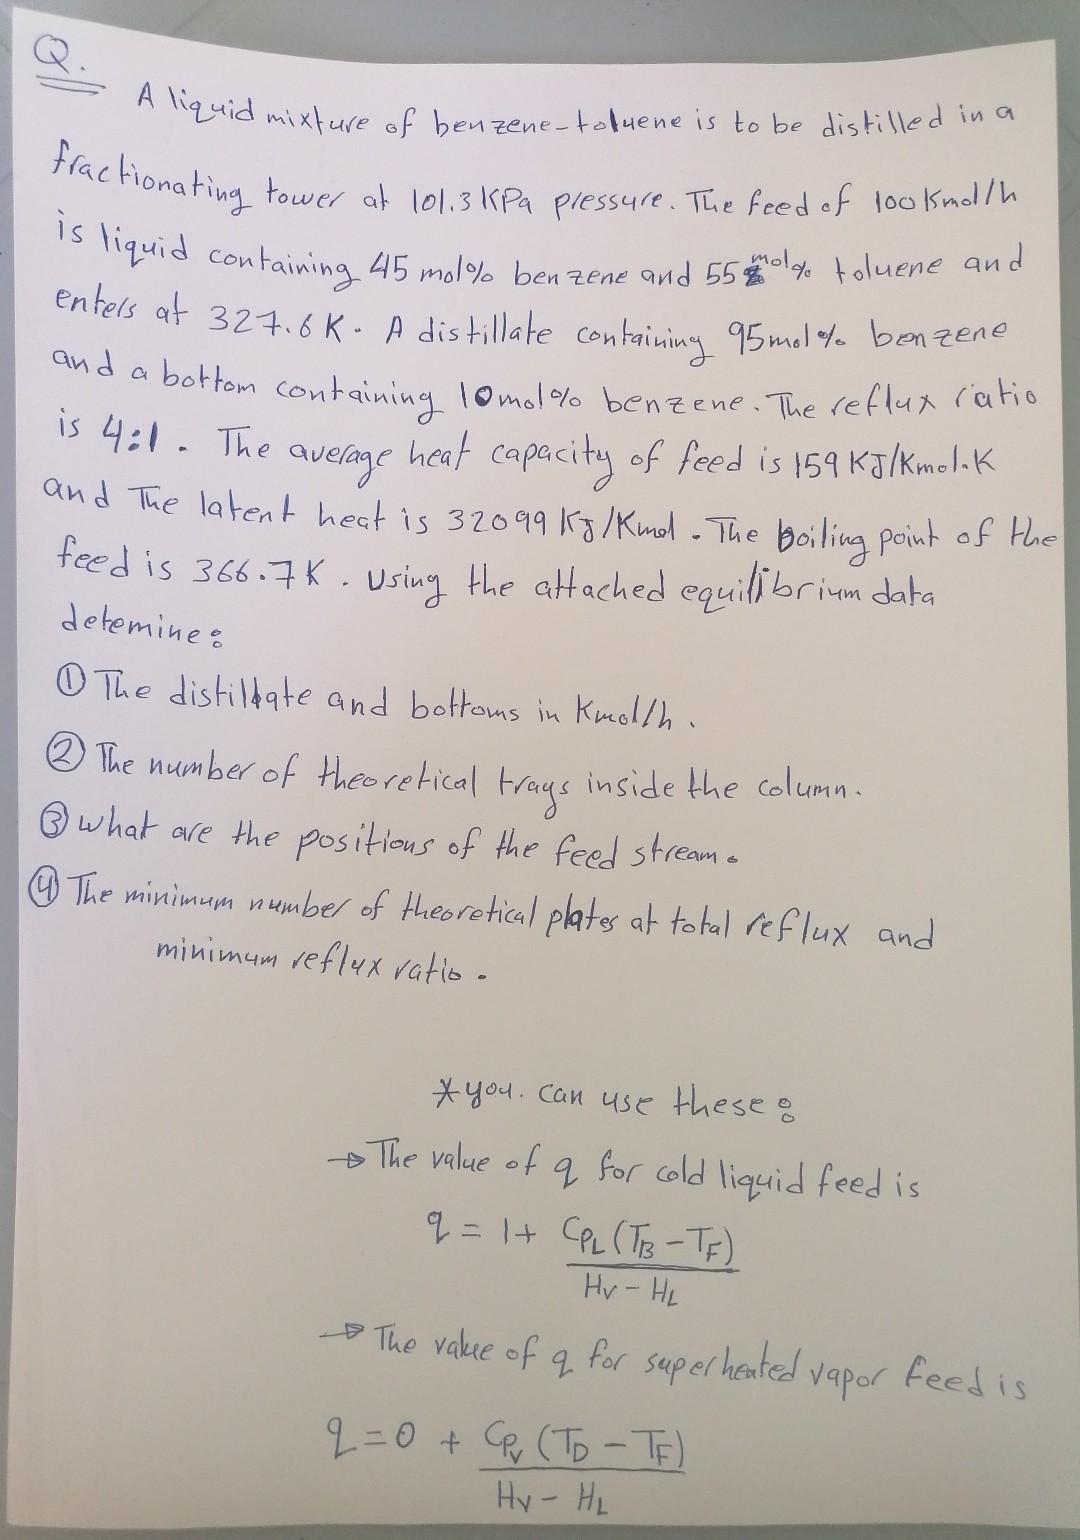 Q.
A liquid mixture of benzene-toluene is to be distilled in a
fractionating tower at 101.3 KPa pressure. The feed of 100 Kmol/h
is liquid containing 45 mol% benzene and 55 mol% toluene and
enters at 327.6 K. A distillate containing 95 mol% benzene
and a bottom containing 10 mol% benzene. The reflux ratio
is 4:1. The average heat capacity of feed is 159 KJ/Kmol.K
and The latent heat is 32099 KJ/Kmol. The boiling point of the
feed is 366.7 K. Using the attached equilibrium data
detemine:
① The distillate and bottoms in Kmol/h.
② The number of theoretical trays inside the column.
③ what are the positions of the feed stream.
④ The minimum number of theoretical plates at total reflux and
minimum reflux ratio.
* you. can use these:
→ The value of q for cold liquid feed is
q = 1 + CPL (TB - TF)
HV - HL
→ The value of q for superheated vapor feed is
q = 0 + CPV (TD - TF)
HV - HL